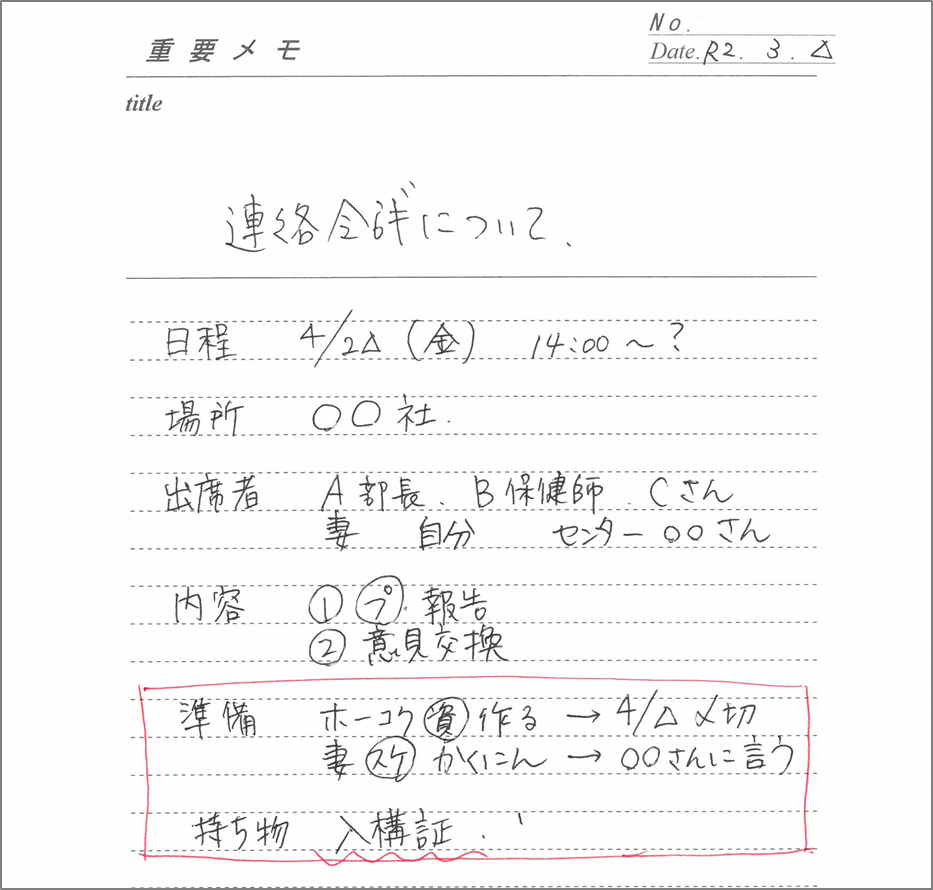 No.
重要メモ
Date. R2. 3. △
title
連絡会議について、
日程 4/2△(金) 14:00~?
場所 〇〇社.
出席者 A部長、B保健師、Cさん
妻 自分 センター〇〇さん
内容 ① プ 報告
② 意見交換
準備 ホーコク資作る → 4/△〆切
妻スケかくにん → 〇〇さんに言う
持ち物 入構証.